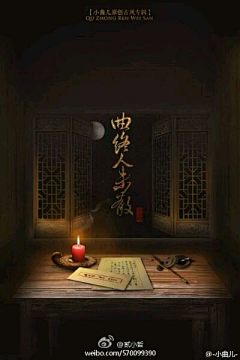 【小曲儿原创古风专辑】
QU ZHONG REN WEI SAN
曲终人未散
@贰小哲
weibo.com/570099390
@-小曲儿-